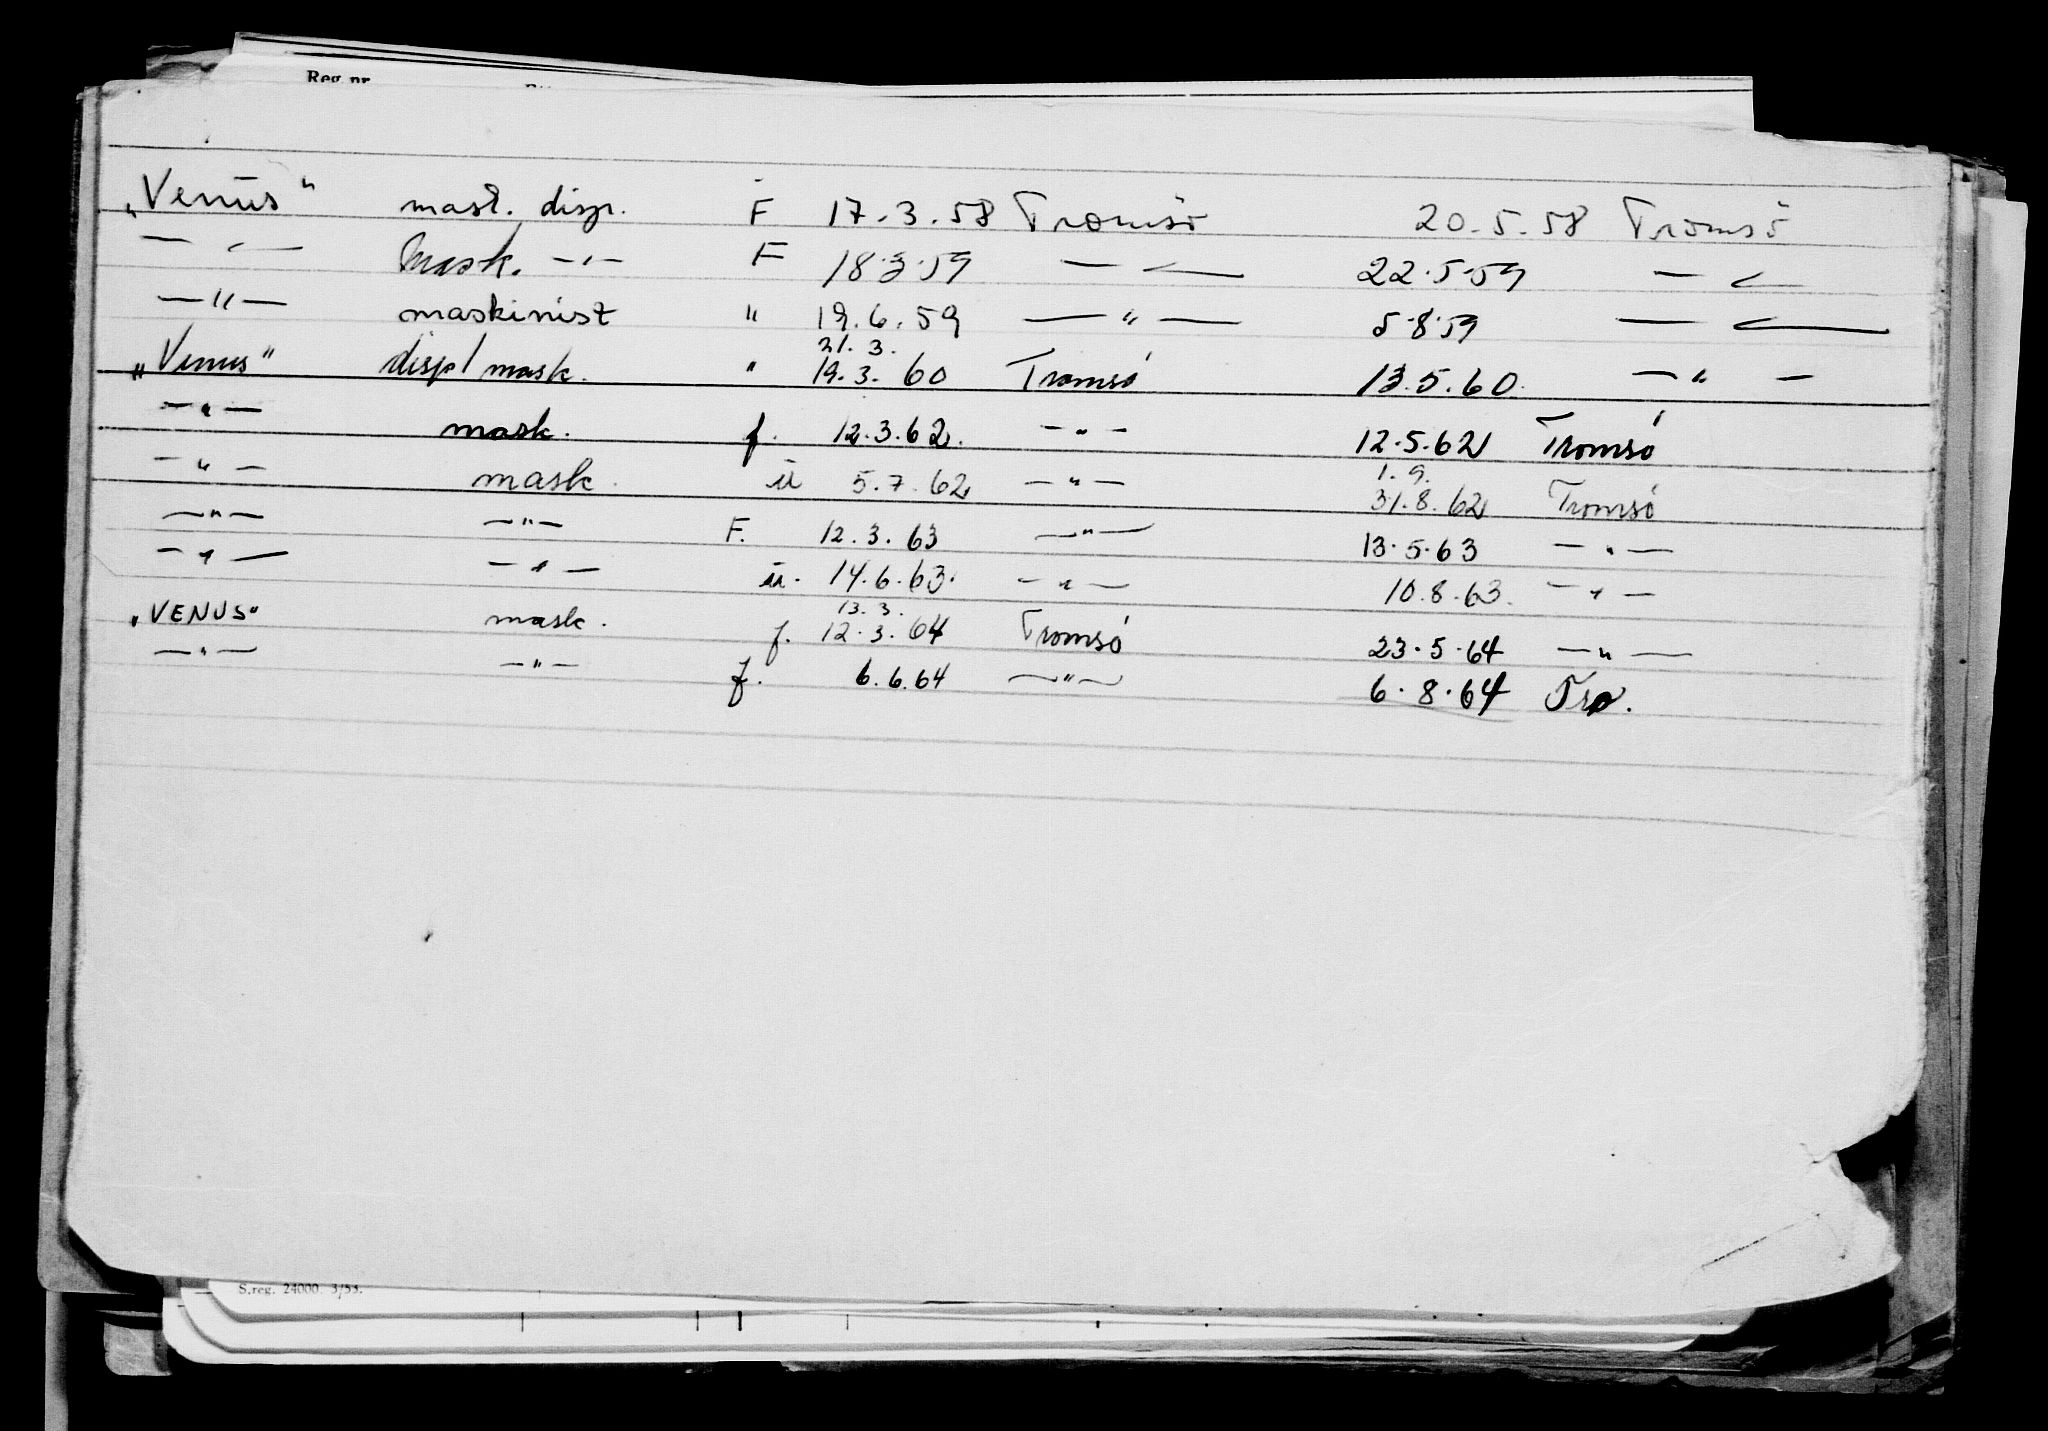 Reg. nr.
„Venus" mask. disp. F 17.3.58 Tromsö 20.5.58 Tromsö
—〃— Mask. —〃— F 18.3.59 —〃— 22.5.59 —〃—
—〃— maskinist 〃 19.6.59 —〃— 5.8.59 —〃—
21.3.
„Venus" displ mask. 〃 19.3.60 Tromsó 13.5.60. —〃—
—〃— mask. f. 12.3.62. —〃— 12.5.62 Tromsó
1.9.
—〃— mask. u 5.7.62 —〃— 31.8.62 Tromsó
—〃— —〃— F. 12.3.63 —〃— 13.5.63 —〃—
—〃— —〃— u. 14.6.63. —〃— 10.8.63. —〃—
13.3.
„VENUS" mask. f. 12.3.64 Tromsó 23.5.64 —〃—
—〃— —〃— f. 6.6.64 —〃— 6.8.64 Tro.
S.reg. 24000. 3/53.